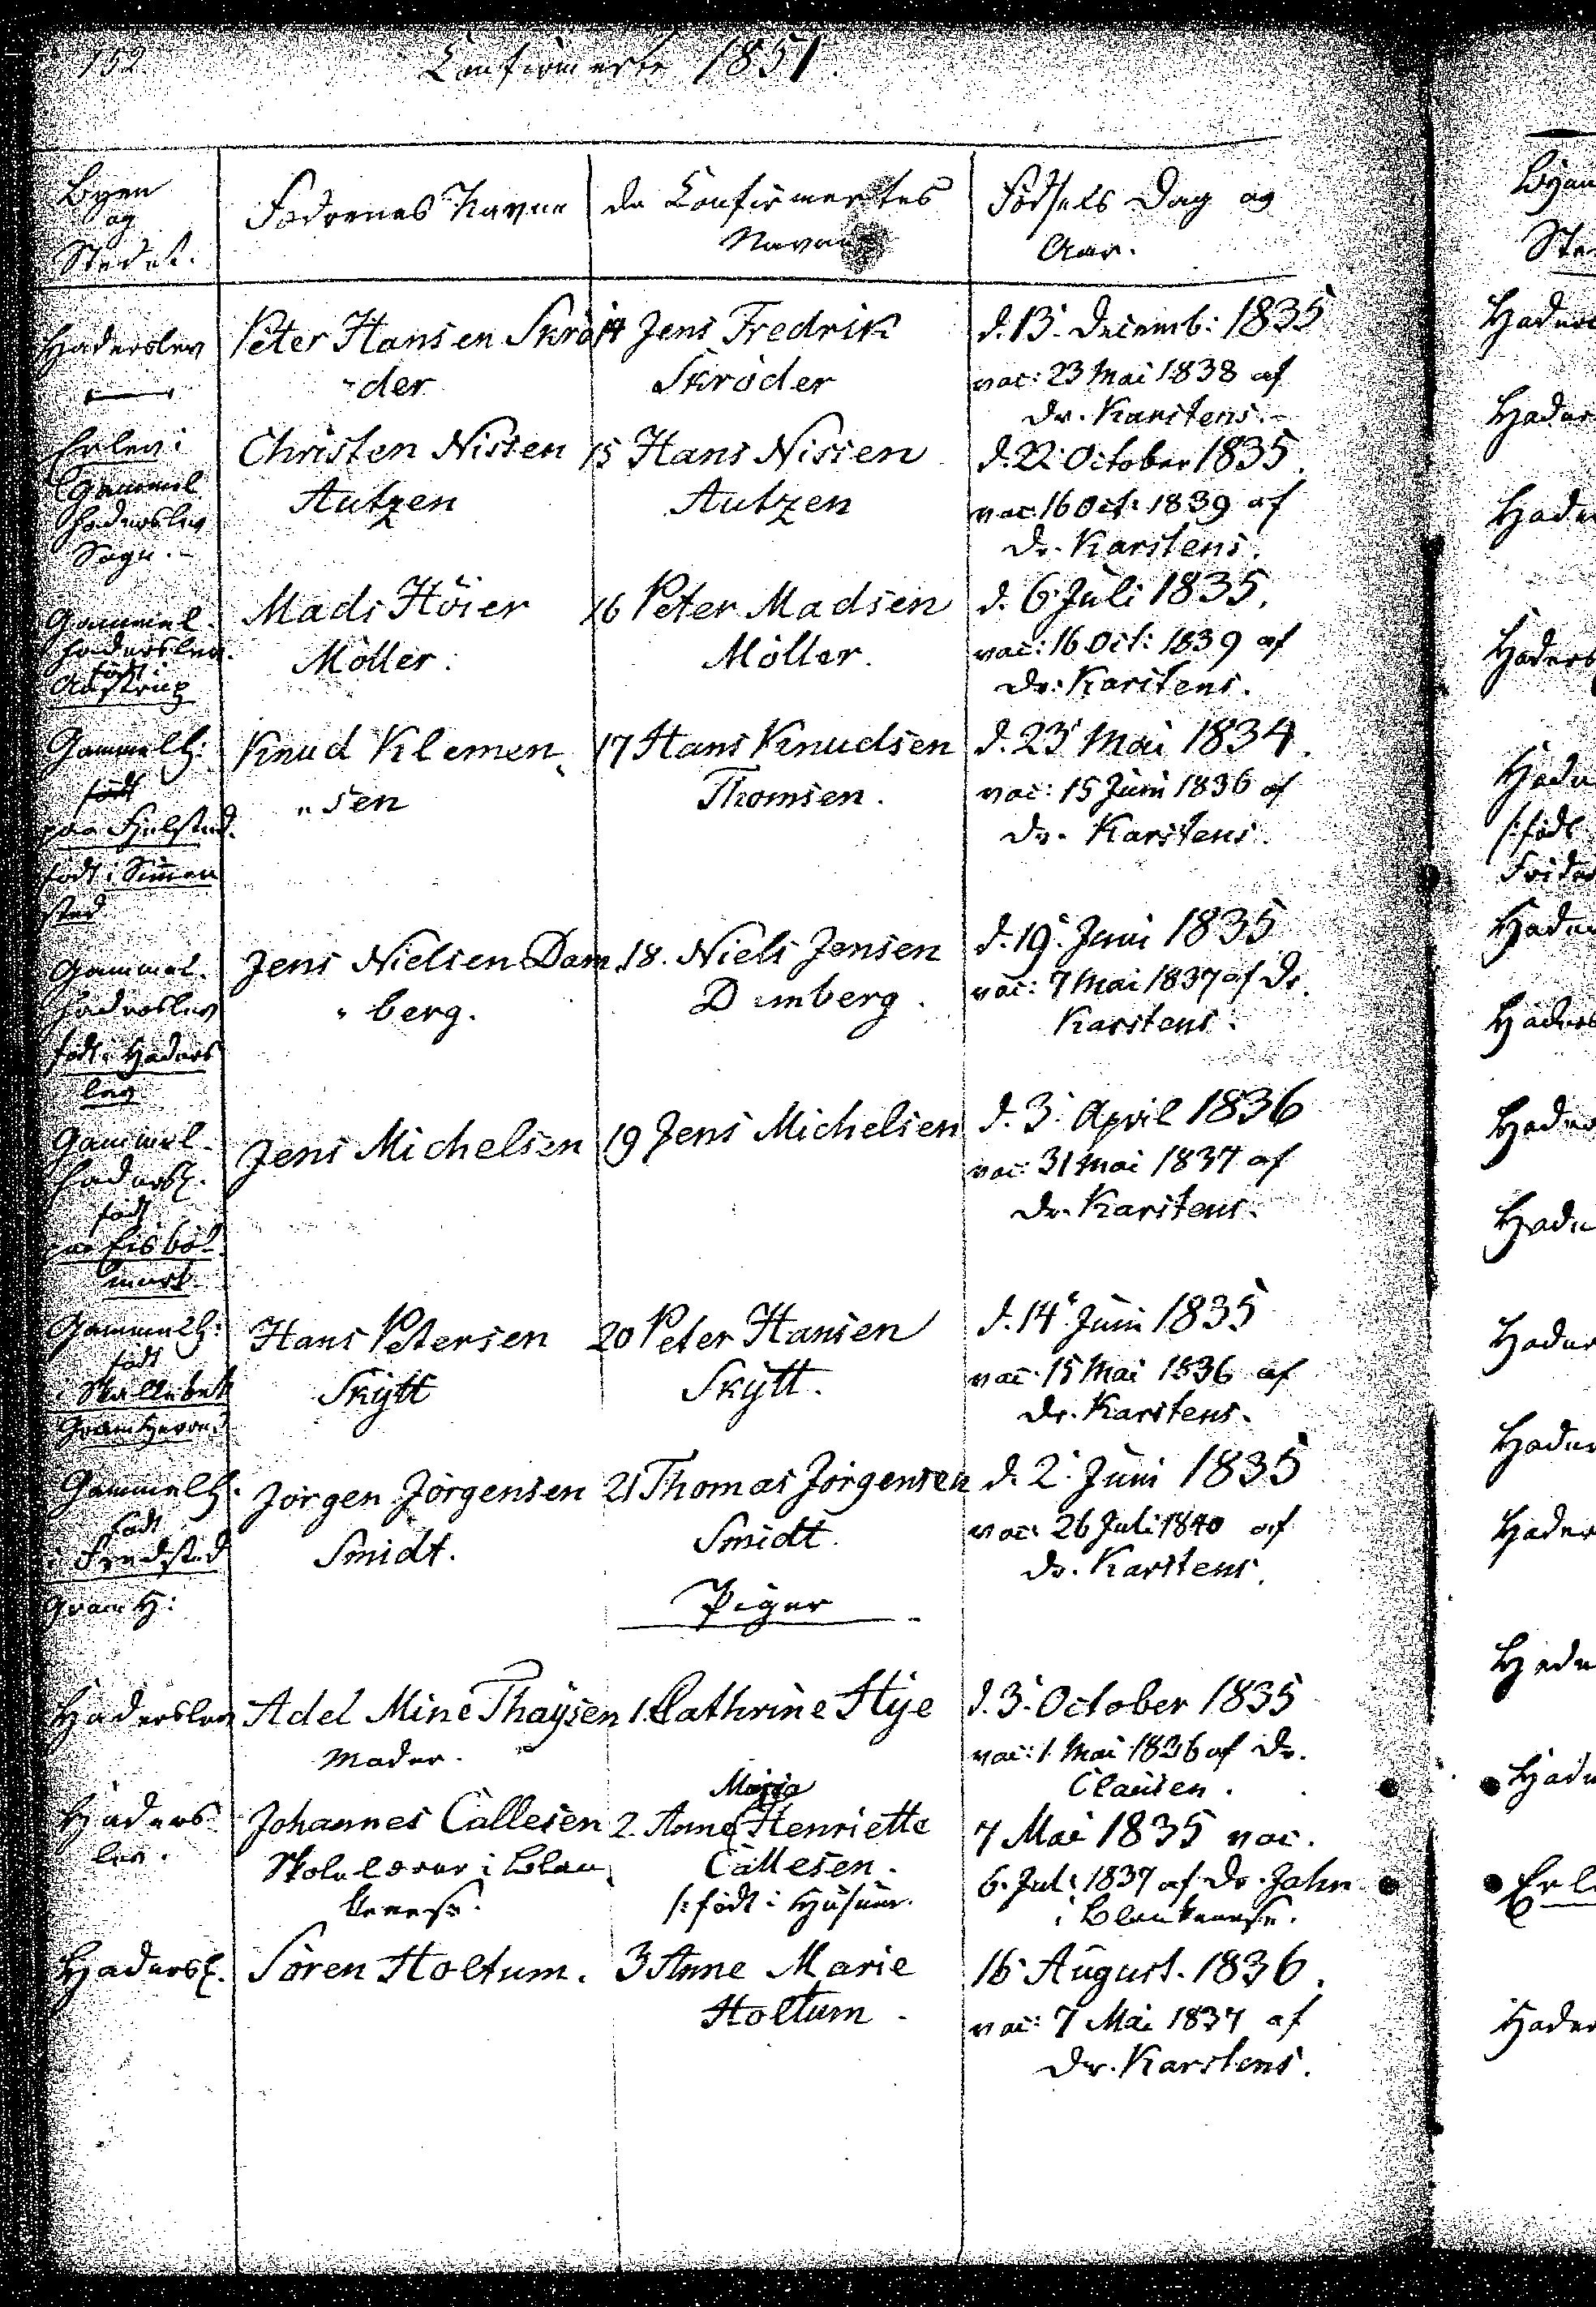 152
Confirmerte 1851.
Byen
og
Stedet.
Fædrenes Navne
de Confirmertes
Navne
Födsels Dag og
Aar.
Haderslev
Peter Hansen Skrö
der
14 Jens Fredrik
Skröder
d. 13. Decemb: 1835
vac: 23 Mai 1838 af
Dr. Karstens.
Erlev i
Gammel
Haderslev
Sogn.
Christen Nissen
Autzen
15 Hans Nissen
Autzen
d. 22. October 1835.
vac. 16 Oct: 1839 af
Dr. Karstens.
Gammel
Haderslev.
födt i
Aastrup
Mads Höier
Möller.
16 Peter Madsen
Möller.
d. 6. Juli 1835.
vac: 16 Oct: 1839 af
Dr. Karstens.
Gammelh:
födt
paa Fjelsted.
födt i Simmer
sted
Knud Klemen
"sen
17 Hans Knudsen
Thomsen.
d. 23 Mai 1834.
vac: 15 Juni 1836 af
Dr. Karstens.
Gammel
Haderslev
födt i Haders
lev
Jens Nielsen Dam
"berg.
18. Niels Jensen
Damberg.
d. 19. Juni 1835
vac: 7 Mai 1837 af Dr.
Karstens.
Gammel
Hadersl.
födt
paa Eisböl
mark.
Jens Michelsen
19 Jens Michelsen
d. 3. April 1836
vac: 31 Mai 1837 af
Dr. Karstens.
Gammelh:
födt
i Skallebek
Gram Herred
Hans Petersen
Skÿtt
20 Peter Hansen
Skÿtt.
d. 14. Juni 1835
vac. 15 Mai 1836 af
Dr. Karstens.
Gammelh.
födt
i
Gram H:
Jörgen Jörgensen
Smidt.
21 Thomas Jörgensen
Smidt.
d. 2. Juni 1835
vac: 26 Juli 1840 af
Dr. Karstens.
Piger
Haderslev
Adel Mine Thaÿsen
Moder.
1. Cathrine Hye
d. 3. October 1835
vac: 1. Mai 1836 af Dr.
Clausen.
Haders
lev.
Johannes Callesen
Skolelærer i Blan
kenese.
Maria
2. Anne Henriette
Callesen.
/: födt i Husum.
7 Mai 1835 vac.
6. Juli 1837 af Dr. Jahn
i Blankenese.
Hadersl.
Sören Holtum.
3 Anne Marie
Holtum.
16 August. 1836.
vac: 7 Mai 1837 af
Dr. Karstens.